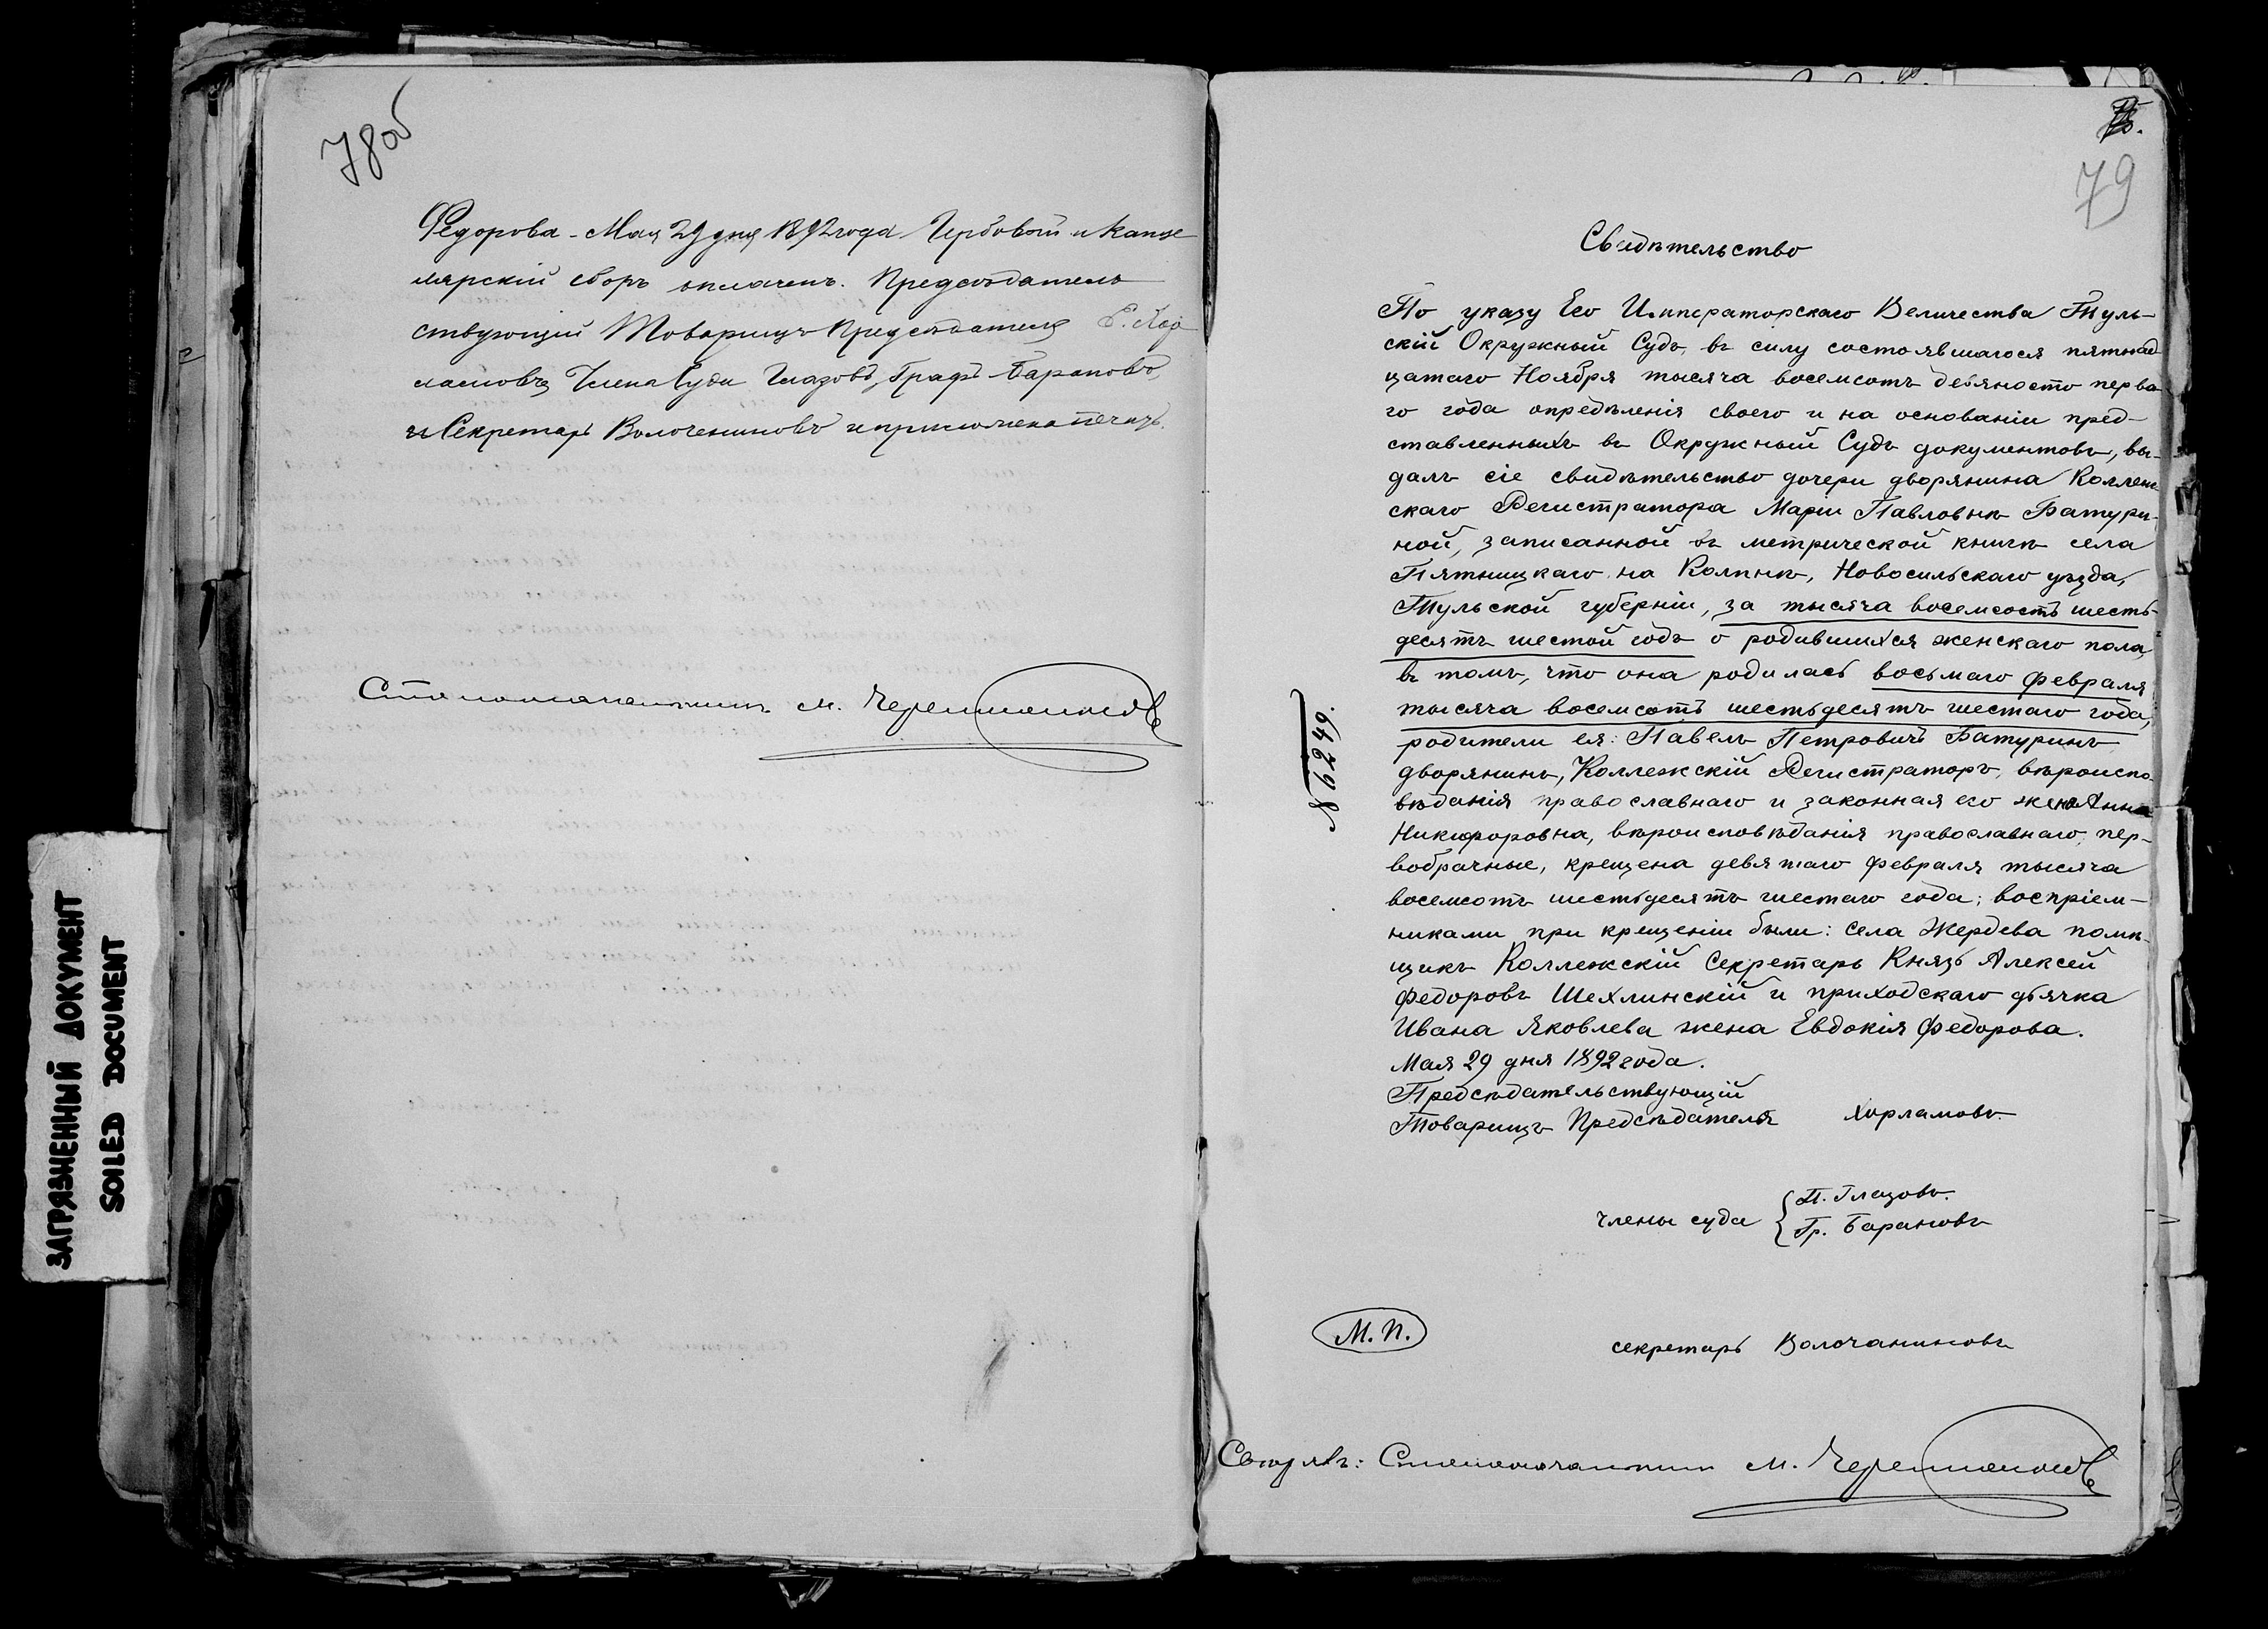 78об
Федорова. Мая 29 дня 1892 года. Гербовый и канце
лярскій сборъ оплаченъ. Предсѣдатель
ствующій Товарищъ Предсѣдателя Е. Хар
ламовъ, Члены Суда Глазовъ, Графъ Барановъ,
и Секретарь Волочаниновъ и приложена печать.
Столоначальникъ М.
ЗАГРЯЗНЕННЫЙ ДОКУМЕНТ
SOILED DOCUMENT
79
Свидѣтельство
По указу Его Императорскаго Величества Туль-
скій Окружный Судъ, въ силу состоявшагося пятнад
цатаго Ноября тысяча восемсотъ девяносто перва
го года опредѣленія своего и на основаніи пред-
ставленныхъ въ Окружный Судъ документовъ, вы-
далъ сіе свидѣтельство дочери дворянина Коллеж
скаго Регистратора Маріи Павловнѣ Батури-
ной, записанной въ метрической книгѣ села
Пятницкаго на Колпнѣ, Новосильскаго уѣзда,
Тульской губерніи, за тысяча восемсотъ шесть-
десятъ шестой годъ о родившихся женскаго пола,
въ томъ, что она родилась восьмаго февраля
тысяча восемсотъ шестьдесятъ шестаго года,
родители ея: Павелъ Петровичъ Батуринъ
дворянинъ, Коллежскій Регистраторъ, вѣроиспо-
вѣданія православнаго и законная его жена Анна
Никифоровна, вѣроисповѣданія православнаго, пер-
вобрачные, крещена девятаго февраля тысяча
восемсотъ шестьдесятъ шестаго года; воспріем-
никами при крещеніи были: села Жердева помѣ-
щикъ Коллежскій Секретарь Князь Алексей
Федоровъ Шехлинскій и приходскаго дьячка
Ивана Яковлева жена Евдокія Федорова.
Мая 29 дня 1892 года.
Предсѣдательствующій
Товарищъ Предсѣдателя Харламовъ.
члены суда { П. Глазовъ.
Гр. Барановъ
№ 6249.
М. П.
секретарь Волочаниновъ
Свѣрялъ: Столоначальникъ М.